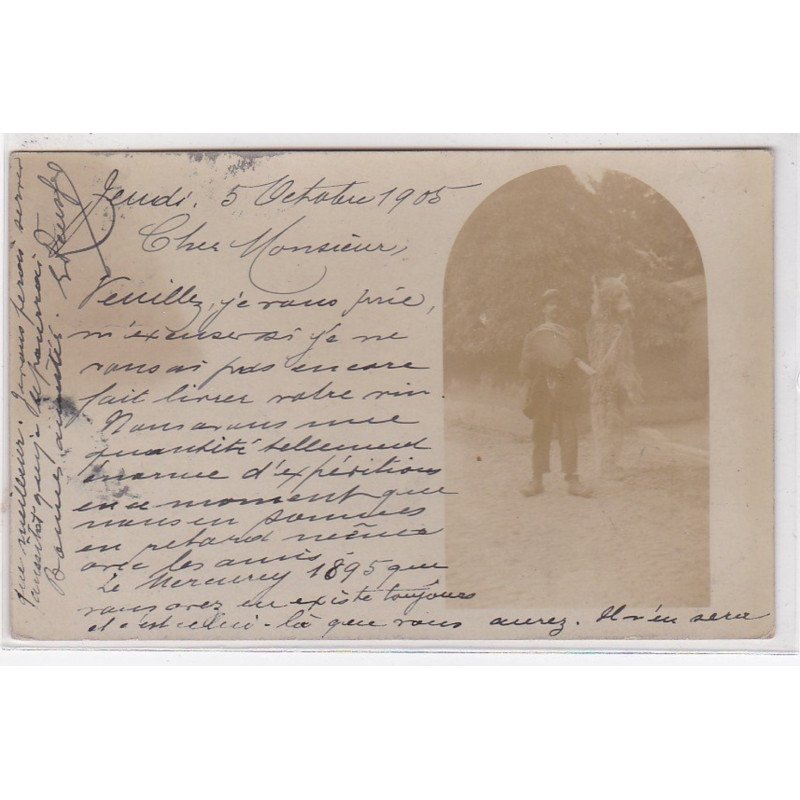 Jeudi, 5 Octobre 1905
Cher Monsieur,
Veuillez, je vous prie,
m'excuser si je ne
vous ai pas encore
fait livrer votre vin.
Nous avons une
quantité tellement
énorme d'expéditions
en ce moment que
nous en sommes
en retard même
avec les amis.
Le Mercurey 1895 que
vous avez eu existe toujours
et c'est celui-là que vous aurez. Il n'en sera
que meilleur. Je vous ferais servir
aussitôt que je le pourrai.
Bonnes amitiés.